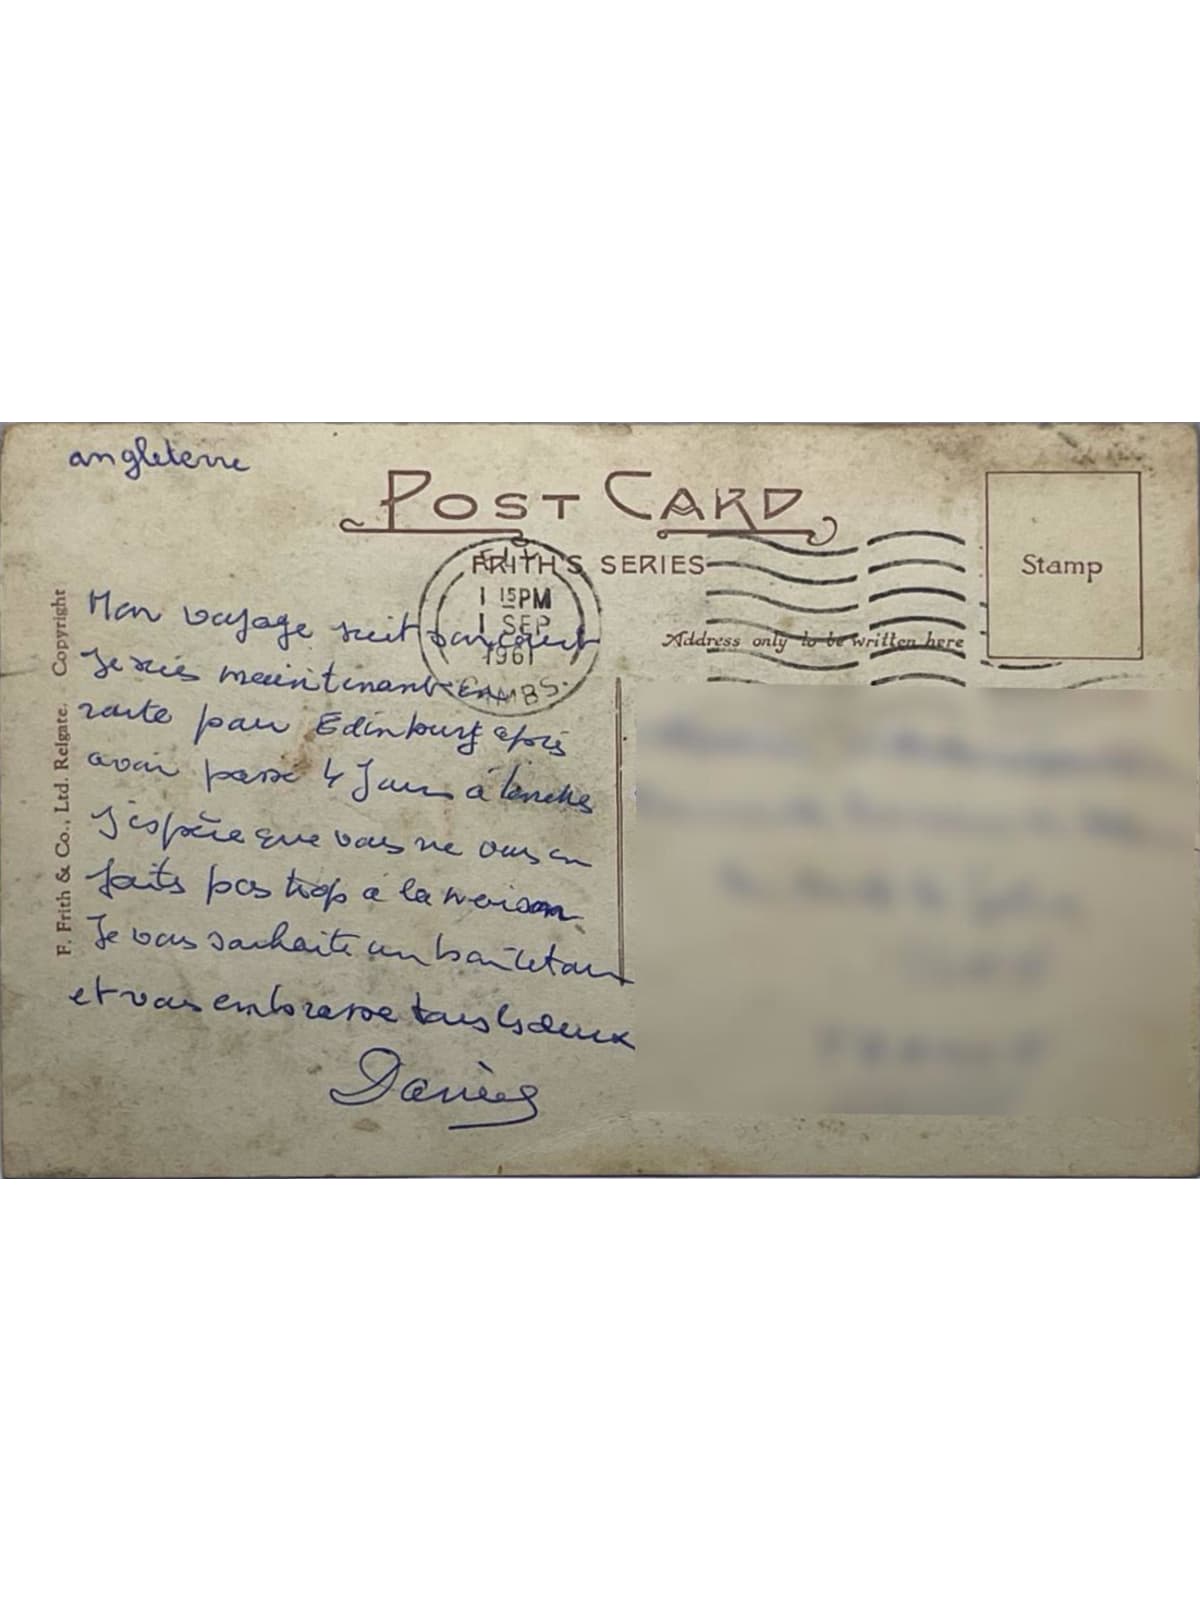 angleterre
POST CARD
FRITH'S SERIES
Stamp
ELY
1 15 PM
1 SEP
1961
CAMBS.
Address only to be written here
F. Frith & Co., Ltd. Reigate. Copyright
Mon voyage suit son cours
Je suis maintenant en
route pour Edinburg après
avoir passé 4 Jours à Londres
J'espère que vous ne vous en
faits pas trop à la maison
Je vous souhaite un bon retour
et vous embrasse tous les deux